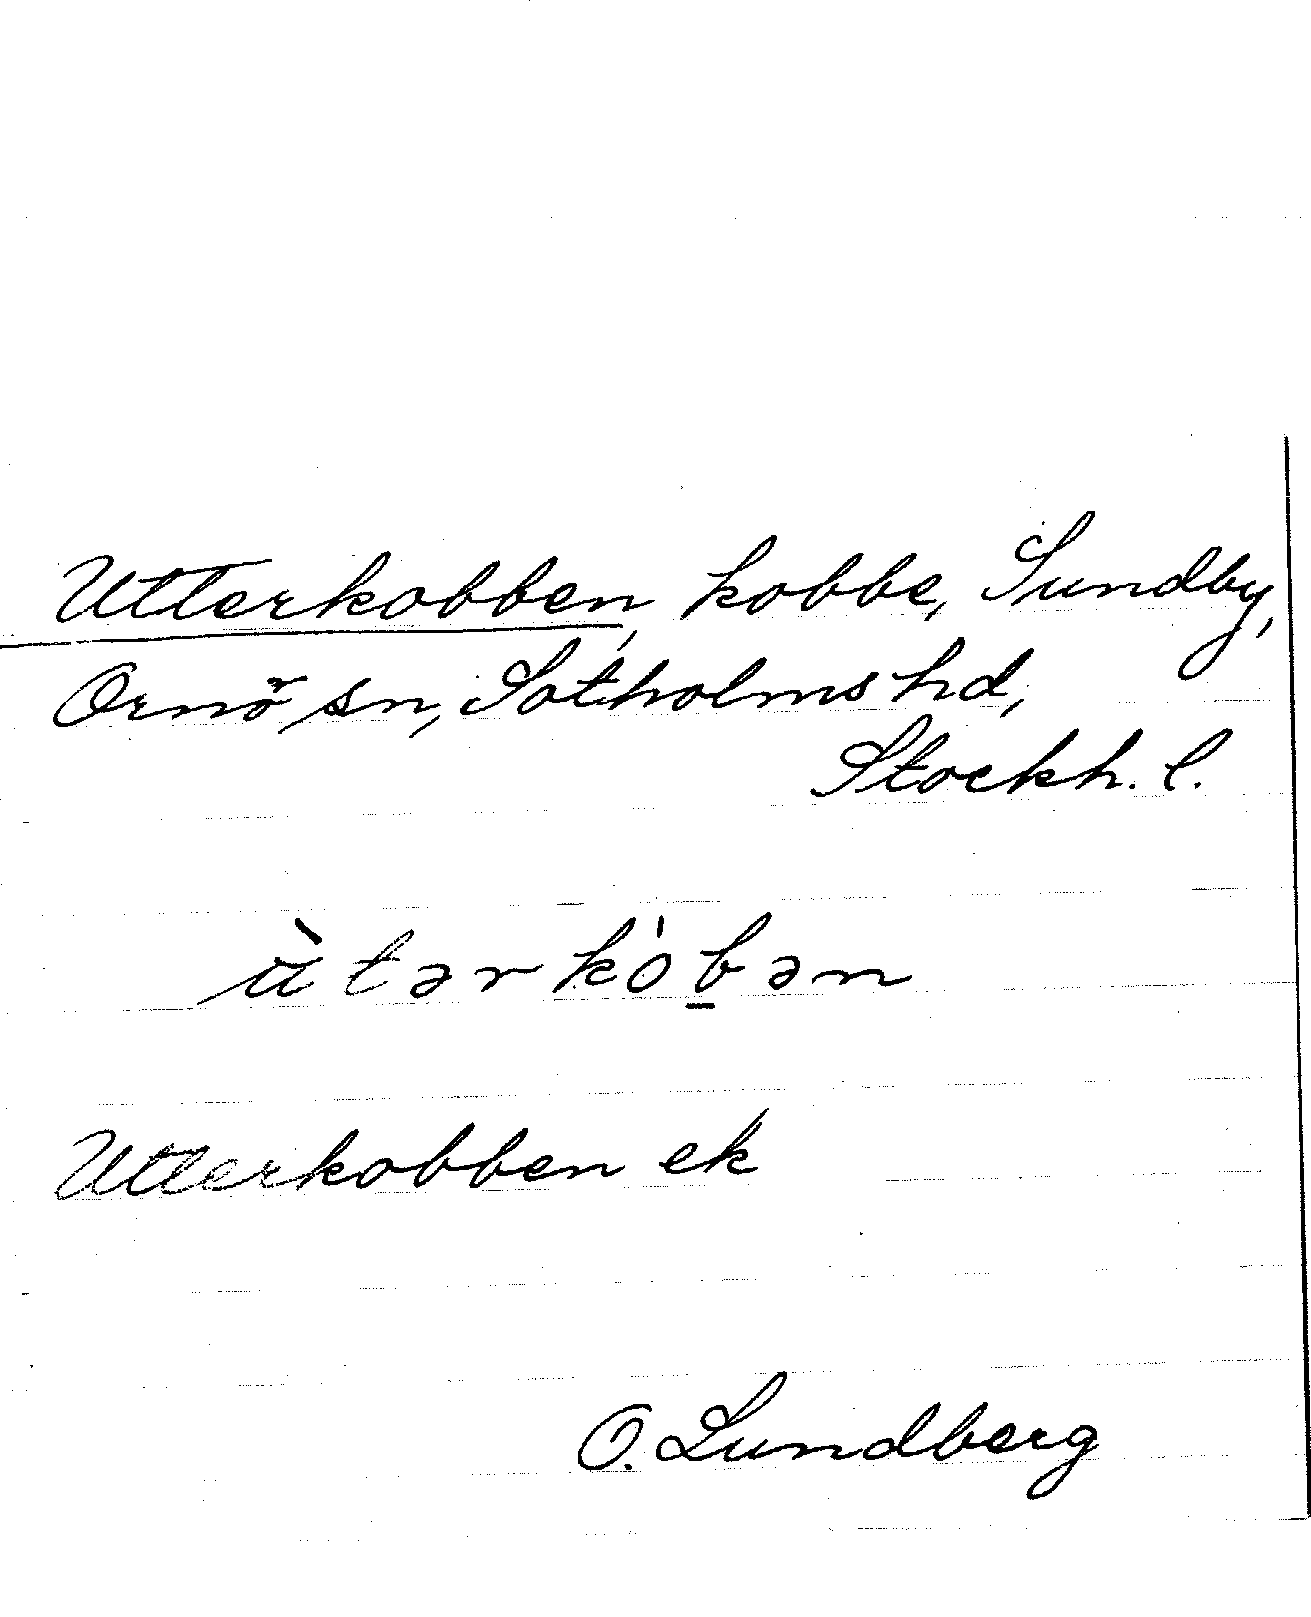 Utterkobben, kobbe, Sundby,
Ornö sn, Sotholms hd,
Stockh. l.
ùtərkòb̲ən
Utterkobben ek
O. Lundberg